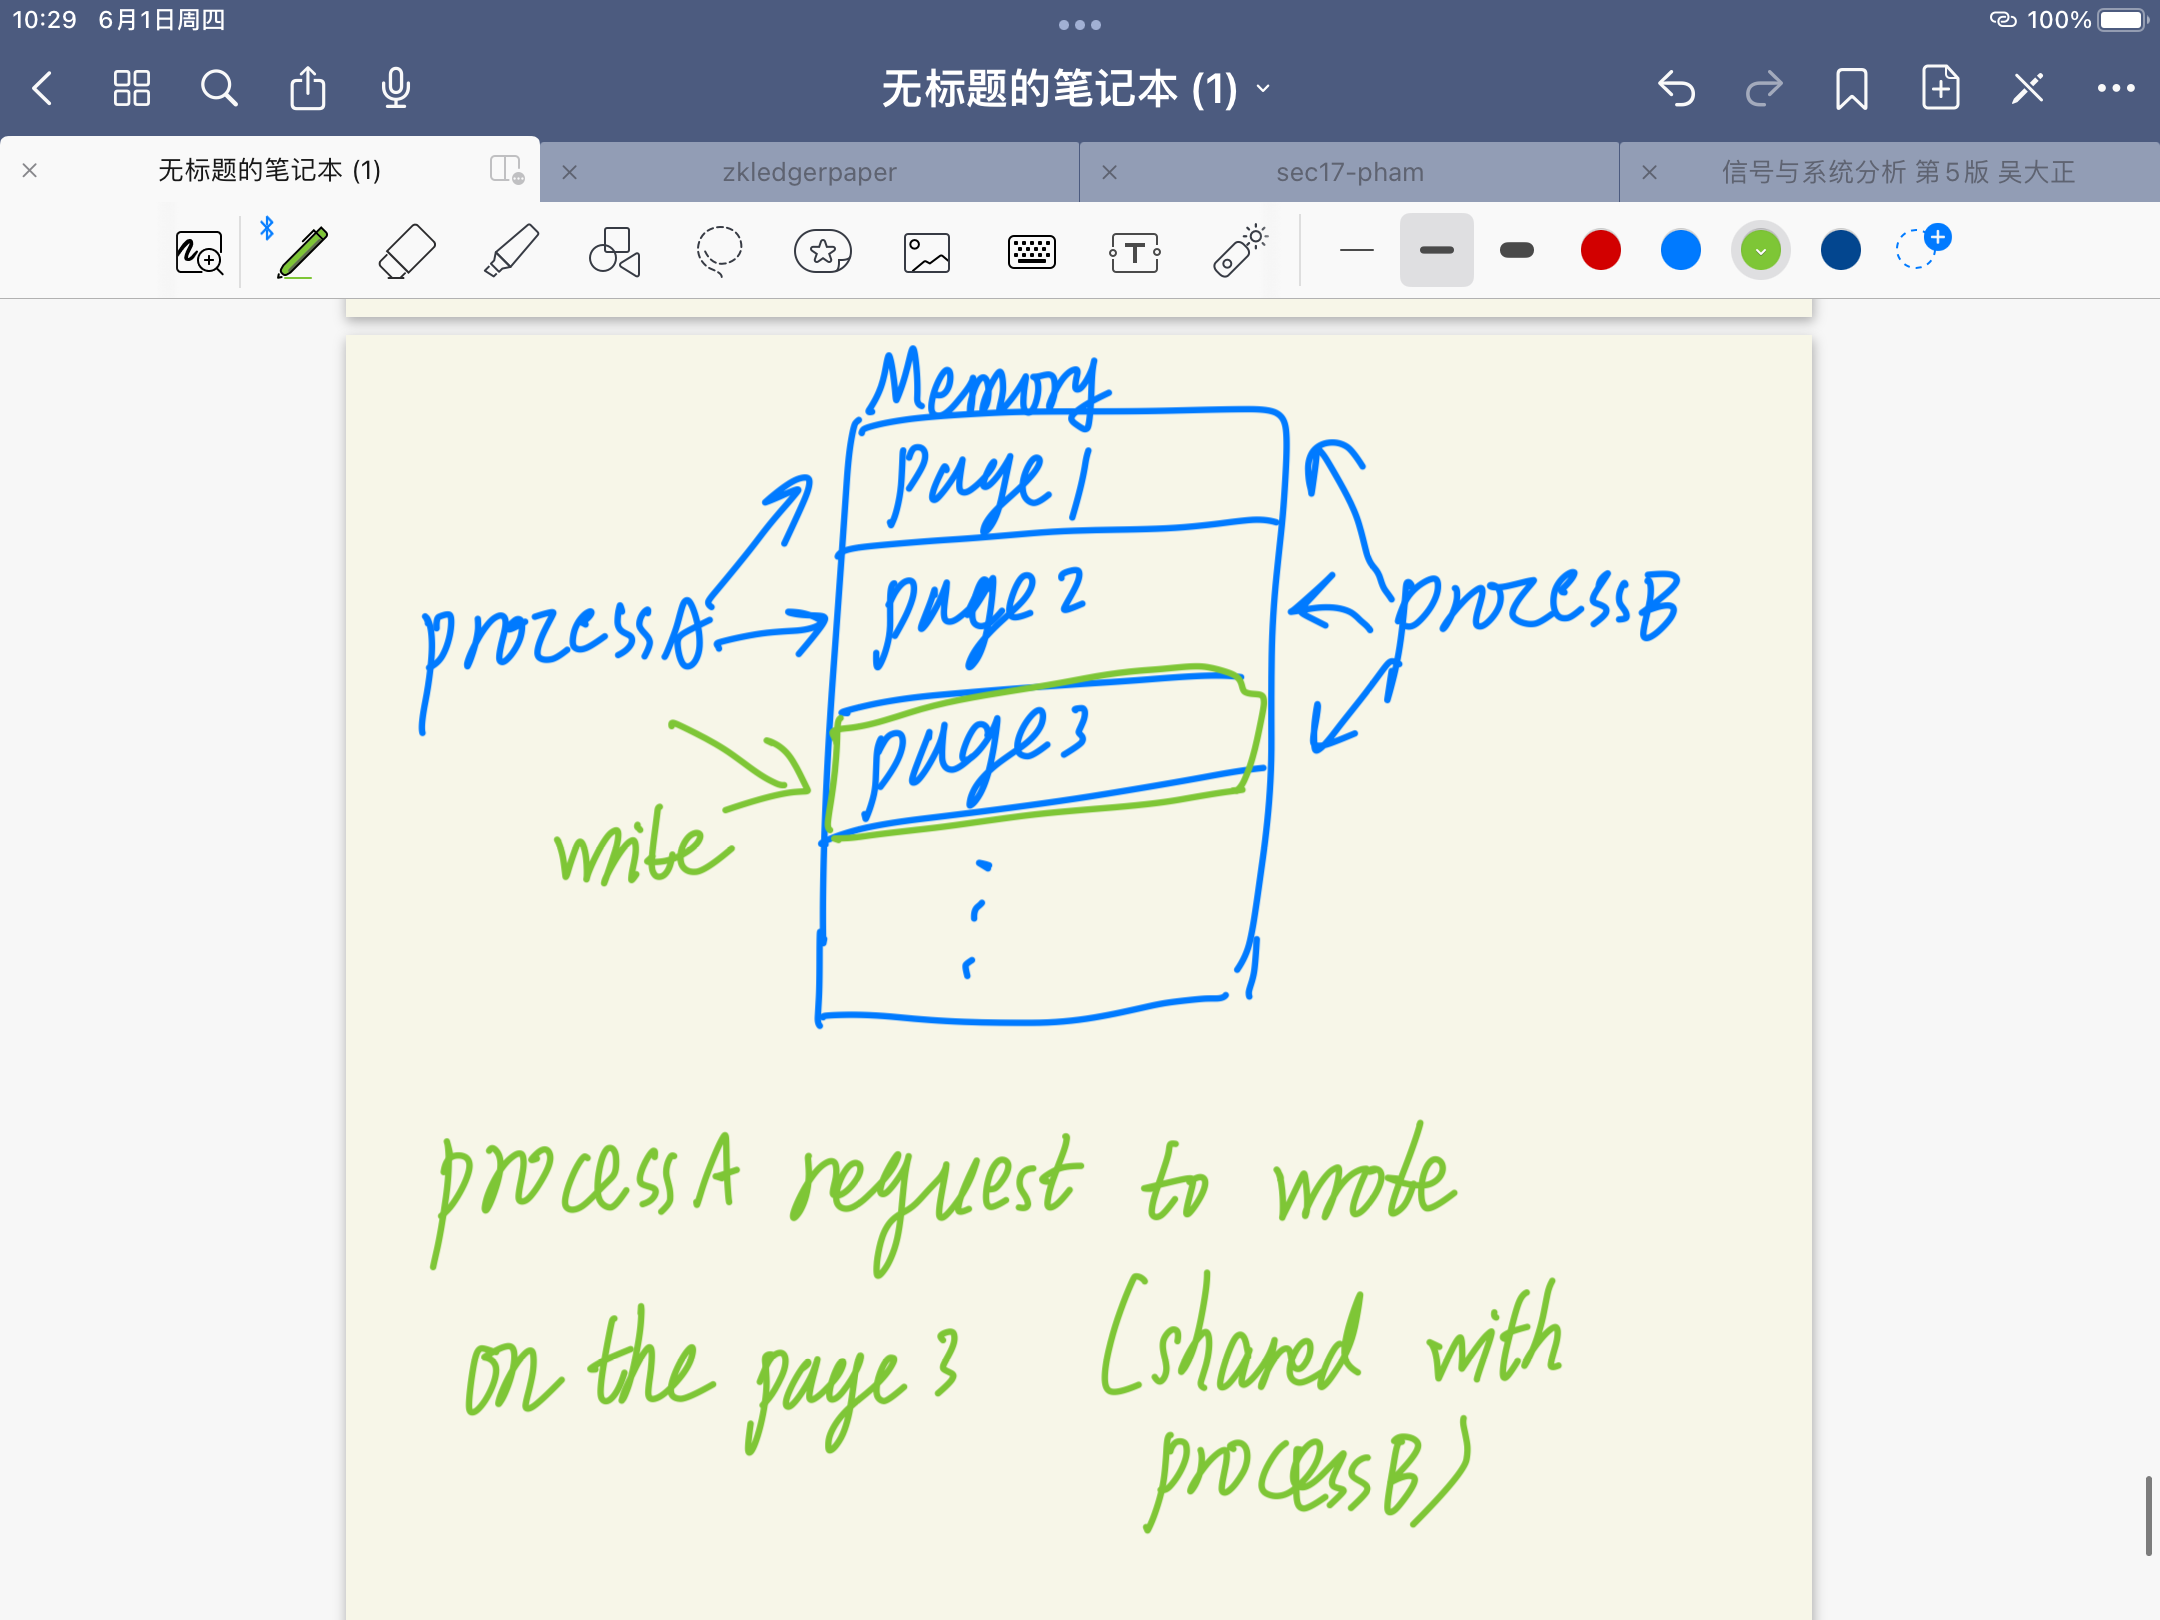 10:29 6月1日周四
100%
无标题的笔记本 (1)
无标题的笔记本 (1)
zkledgerpaper
sec17-pham
信号与系统分析 第5版 吴大正
Memory
page 1
page 2
processA
processB
page 3
write
processA request to wrote
on the page 3 (shared with
processB)